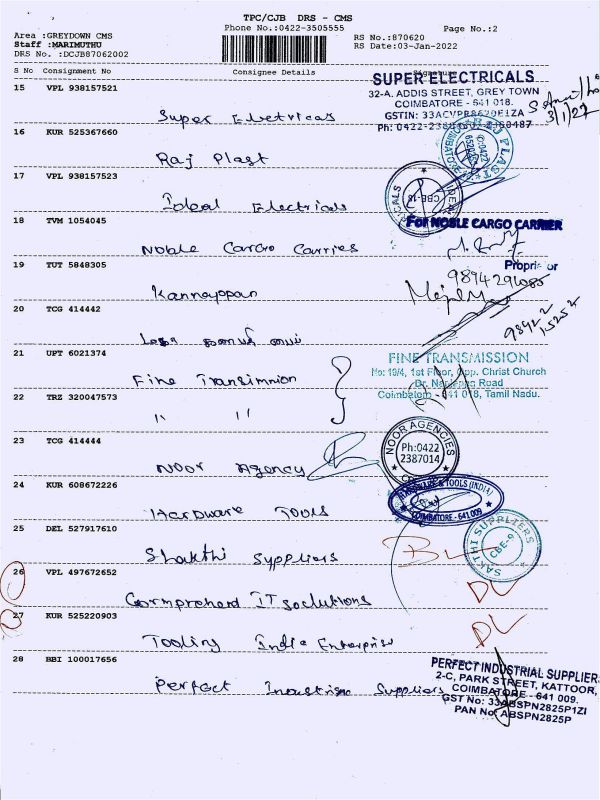 TPC/CJB DRS - CMS
Phone No.:0422-3505555
Page No.:2
Area :GREYDOWN CMS
Staff :MARIMUTHU
DRS No. :DCJB87062002
RS No.:870620
RS Date:03-Jan-2022
S No Consignment No Consignee Details
15 VPL 938157521
Super Electricas
SUPER ELECTRICALS
32-A, ADDIS STREET, GREY TOWN
COIMBATORE - 641 018.
3/1/22
16 KUR 525367660
Raj Plast
17 VPL 938157523
Ideal Electricals
18 TVM 1054045
Noble Cargo Carries
For NOBLE CARGO CARRIER
Proprietor
19 TUT 5848305
Kannappan
20 TCG 414442
21 UPT 6021374
Fine Transimnion
FINE TRANSMISSION
No: 19/4, 1st Floor, Opp. Christ Church
Dr. Nanjappa Road
Coimbatore - 641 018, Tamil Nadu.
22 TRZ 320047573
" "
23 TCG 414444
Noor Agency
NOOR AGENCIES
Ph:0422
2387014
24 KUR 608672226
Hardware Tools
HARDWARE & TOOLS (INDIA)
COIMBATORE - 641 009
25 DEL 527917610
Shakthi Suppliers
SAKTHI SUPPLIERS
CBE-9
26 VPL 497672652
Comprehend IT soclutions
DL
27 KUR 525220903
Tooling India Enterprise
DL
28 BBI 100017656
Perfect Industrism Suppliers
PERFECT INDUSTRIAL SUPPLIER
2-C, PARK STREET, KATTOOR,
COIMBATORE - 641 009.
GST No: 33ABSPN2825P1ZI
PAN No: ABSPN2825P